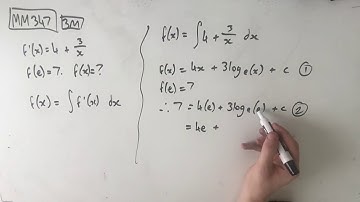 MM347 3M
f'(x) = 4 + 3/x
f(e) = 7. f(x) = ?
f(x) = ∫ f'(x) dx
f(x) = ∫ 4 + 3/x dx
f(x) = 4x + 3logₑ(x) + c ①
f(e) = 7
∴ 7 = 4(e) + 3logₑ(e) + c ②
= 4e +